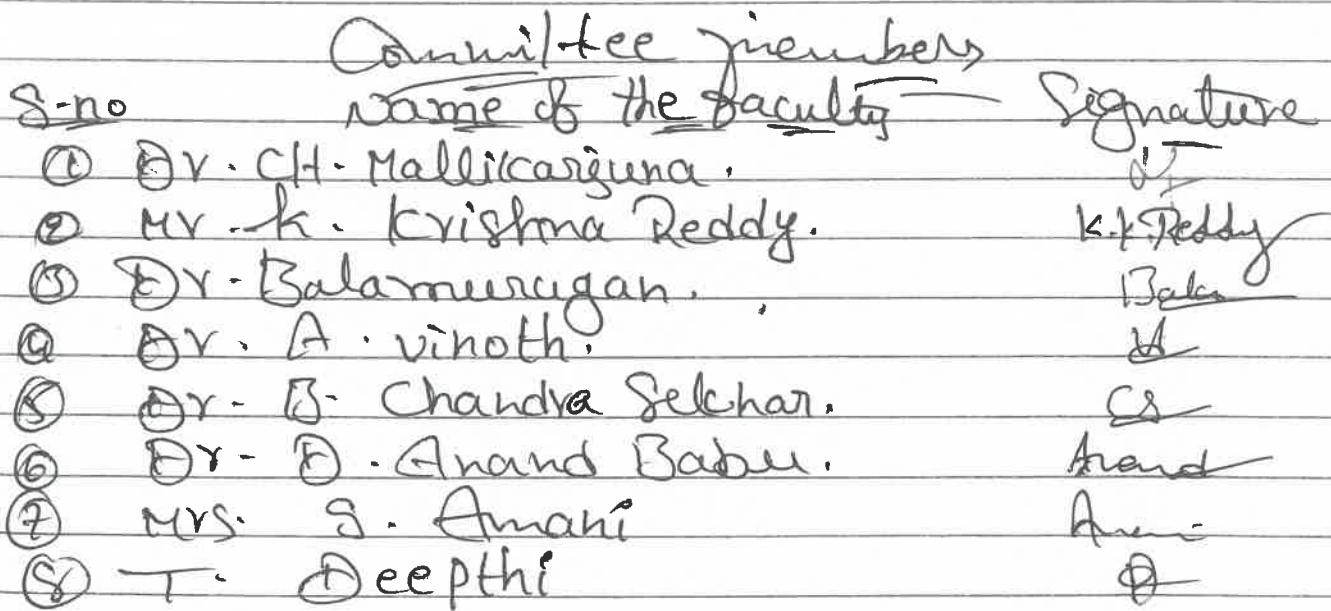 Committee members
S-no Name of the faculty Signature
① Dr. CH. Mallikarjuna.
② Mr. K. Krishna Reddy. K.K.Reddy
③ Dr. Balamurugan. Bala
④ Dr. A. vinoth.
⑤ Dr. B. Chandra Sekhar. CS
⑥ Dr. D. Anand Babu. Anand
⑦ Mrs. S. Amani
⑧ T. Deepthi